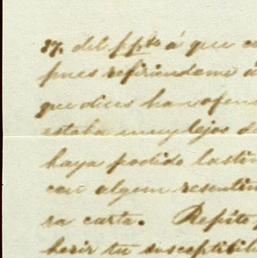 27. del ppdo á que co
pues refiriendome á
que dices han ofen
estaba muy lejos de
haya podido lasti
con algun resentim
ra carta. Repito
herir tu susceptibil